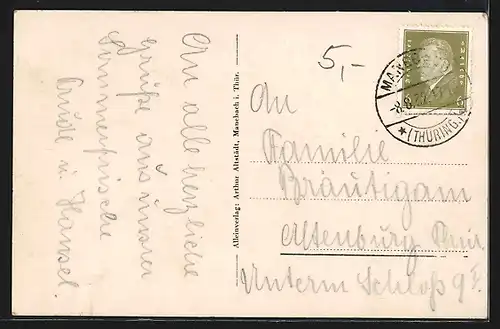 An alle herzliche
Grüße aus unsrer
Sommerfrische
Trude u. Hansel.
Alleinverlag: Arthur Altstädt, Manebach i. Thür.
5,-
(THÜRING.
An
Familie
Bräutigam
Altenburg Thür.
Unterm Schloß 9